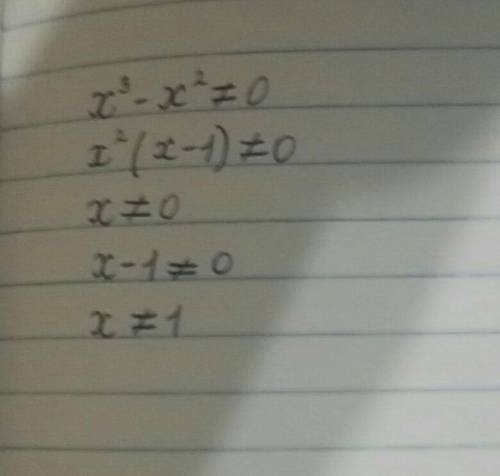 x³ - x² ≠ 0
x² (x - 1) ≠ 0
x ≠ 0
x - 1 ≠ 0
x ≠ 1